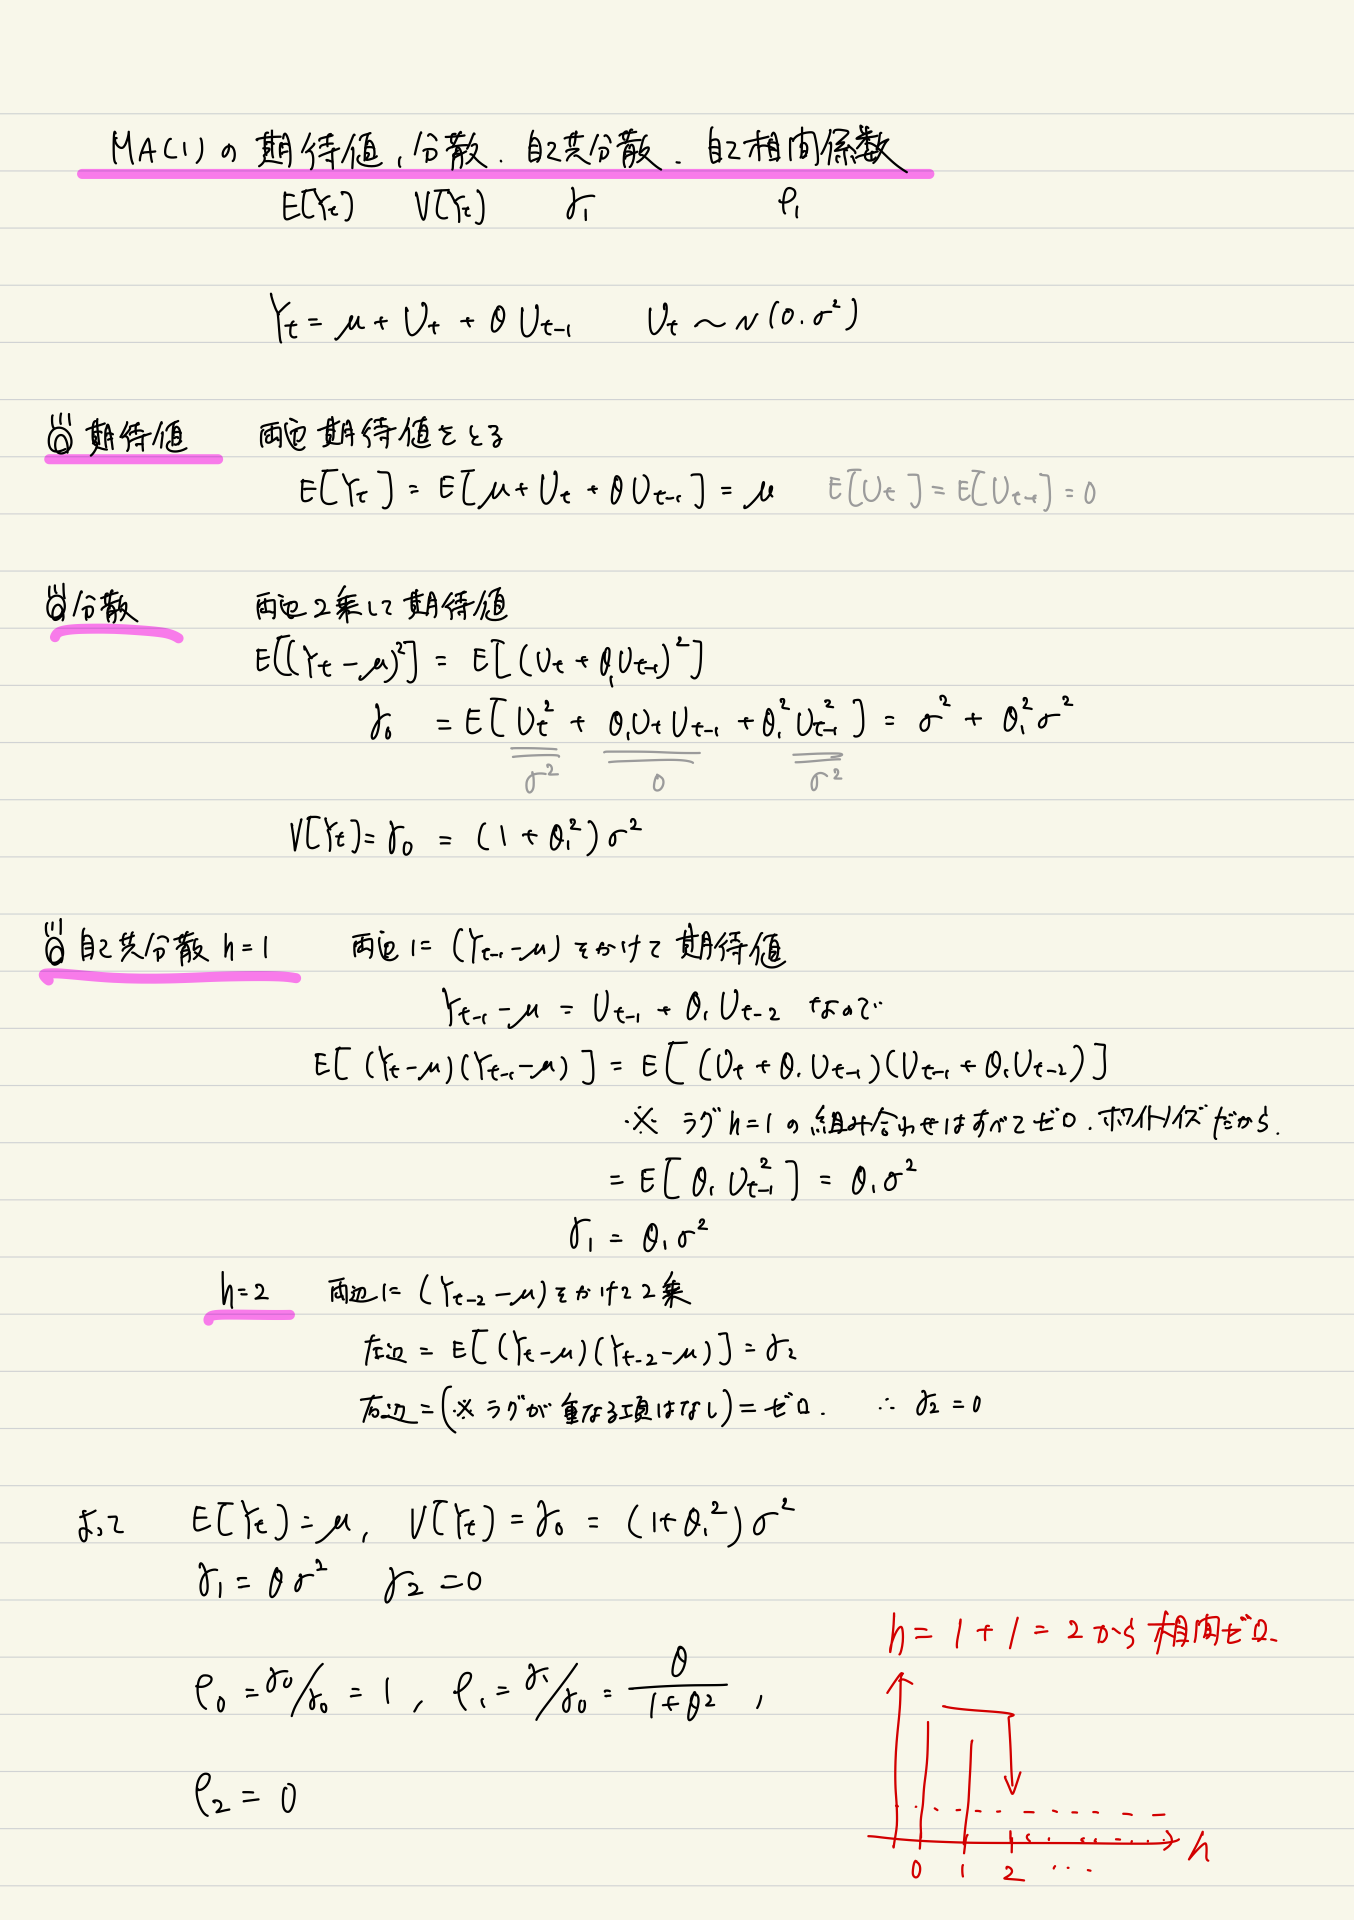 MA(1)の期待値,分散.自己共分散.自己相関係数
E[Yt] V[Yt] γ₁ ρ₁
Yt = μ + Ut + θUt-1 Ut ~ N(0.σ²)
期待値 両辺期待値をとる
E[Yt] = E[μ + Ut + θUt-1] = μ E[Ut] = E[Ut-1] = 0
分散 両辺2乗して期待値
E[(Yt-μ)²] = E[(Ut + θ₁Ut-1)²]
γ₀ = E[Ut² + θ₁UtUt-1 + θ₁²Ut-1²] = σ² + θ₁²σ²
σ² 0 σ²
V[Yt] = γ₀ = (1 + θ₁²)σ²
自己共分散 h=1 両辺に (Yt-1-μ)をかけて期待値
Yt-1-μ = Ut-1 + θ₁Ut-2 なので
E[(Yt-μ)(Yt-1-μ)] = E[(Ut + θ₁Ut-1)(Ut-1 + θ₁Ut-2)]
※ ラグh=1の組み合わせはすべてゼロ.ホワイトノイズだから.
= E[θ₁Ut-1²] = θ₁σ²
γ₁ = θ₁σ²
h=2 両辺に (Yt-2-μ)をかけて2乗
左辺 = E[(Yt-μ)(Yt-2-μ)] = γ₂
右辺=(※ラグが重なる項はなし)=ゼロ. ∴ γ₂ = 0
よって E[Yt] = μ, V[Yt] = γ₀ = (1+θ₁²)σ²
γ₁ = θσ² γ₂ = 0
h = 1 + 1 = 2から相関ゼロ.
ρ₀ = γ₀/γ₀ = 1, ρ₁ = γ₁/γ₀ = θ/(1+θ²),
ρ₂ = 0
h
0 1 2 ...